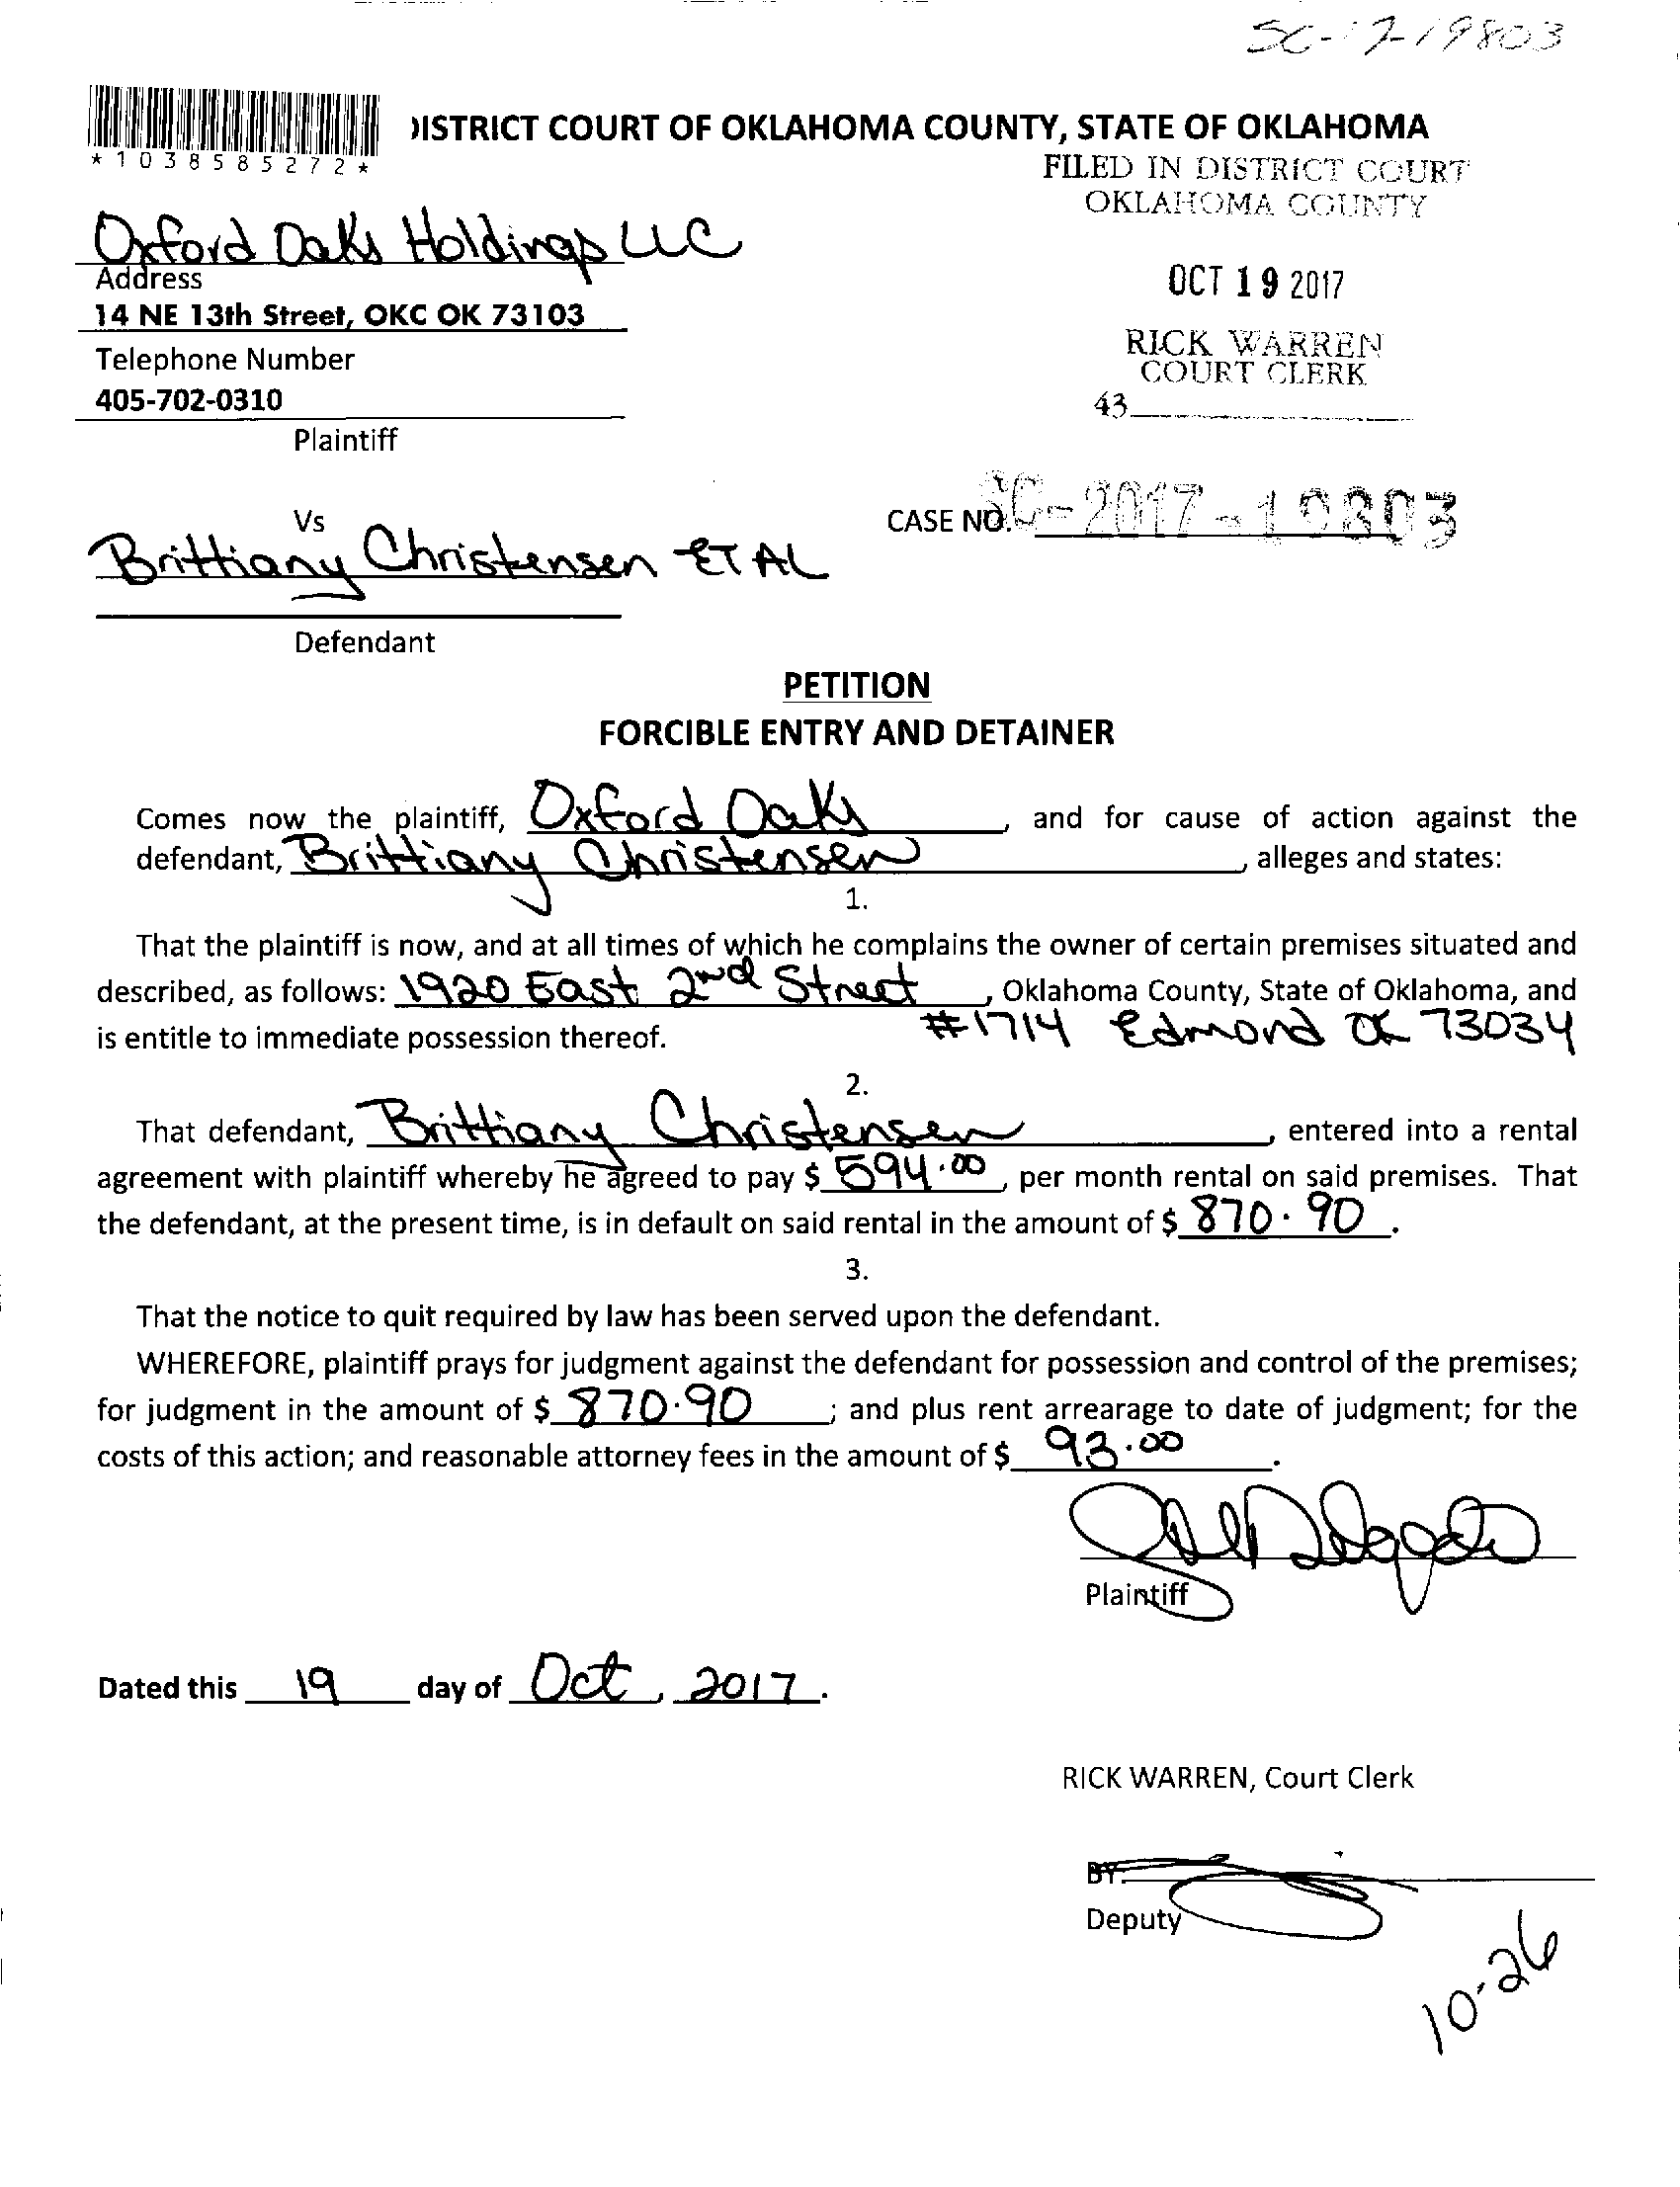 SC-17-19803
DISTRICT COURT OF OKLAHOMA COUNTY, STATE OF OKLAHOMA
*1038585272*
FILED IN DISTRICT COURT
OKLAHOMA COUNTY
Oxford Oaks Holdings LLC
Address
OCT 19 2017
14 NE 13th Street, OKC OK 73103
RICK WARREN
COURT CLERK
Telephone Number
405-702-0310
43
Plaintiff
Vs
CASE NO. SC-2017-19803
Brittiany Christensen ET AL
Defendant
PETITION
FORCIBLE ENTRY AND DETAINER
Comes now the plaintiff, Oxford Oaks, and for cause of action against the
defendant, Brittiany Christensen, alleges and states:
1.
That the plaintiff is now, and at all times of which he complains the owner of certain premises situated and
described, as follows: 1920 East 2nd Street, Oklahoma County, State of Oklahoma, and
#1714 Edmond OK 73034
is entitle to immediate possession thereof.
2.
That defendant, Brittiany Christensen, entered into a rental
agreement with plaintiff whereby he agreed to pay $ 594.00, per month rental on said premises. That
the defendant, at the present time, is in default on said rental in the amount of $ 870.90.
3.
That the notice to quit required by law has been served upon the defendant.
WHEREFORE, plaintiff prays for judgment against the defendant for possession and control of the premises;
for judgment in the amount of $ 870.90; and plus rent arrearage to date of judgment; for the
costs of this action; and reasonable attorney fees in the amount of $ 93.00.
Plaintiff
Dated this 19 day of Oct, 2017.
RICK WARREN, Court Clerk
BY:
Deputy
10-26